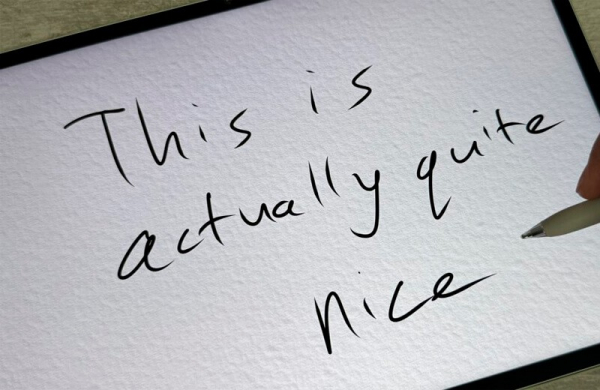 This is
actually quite
nice